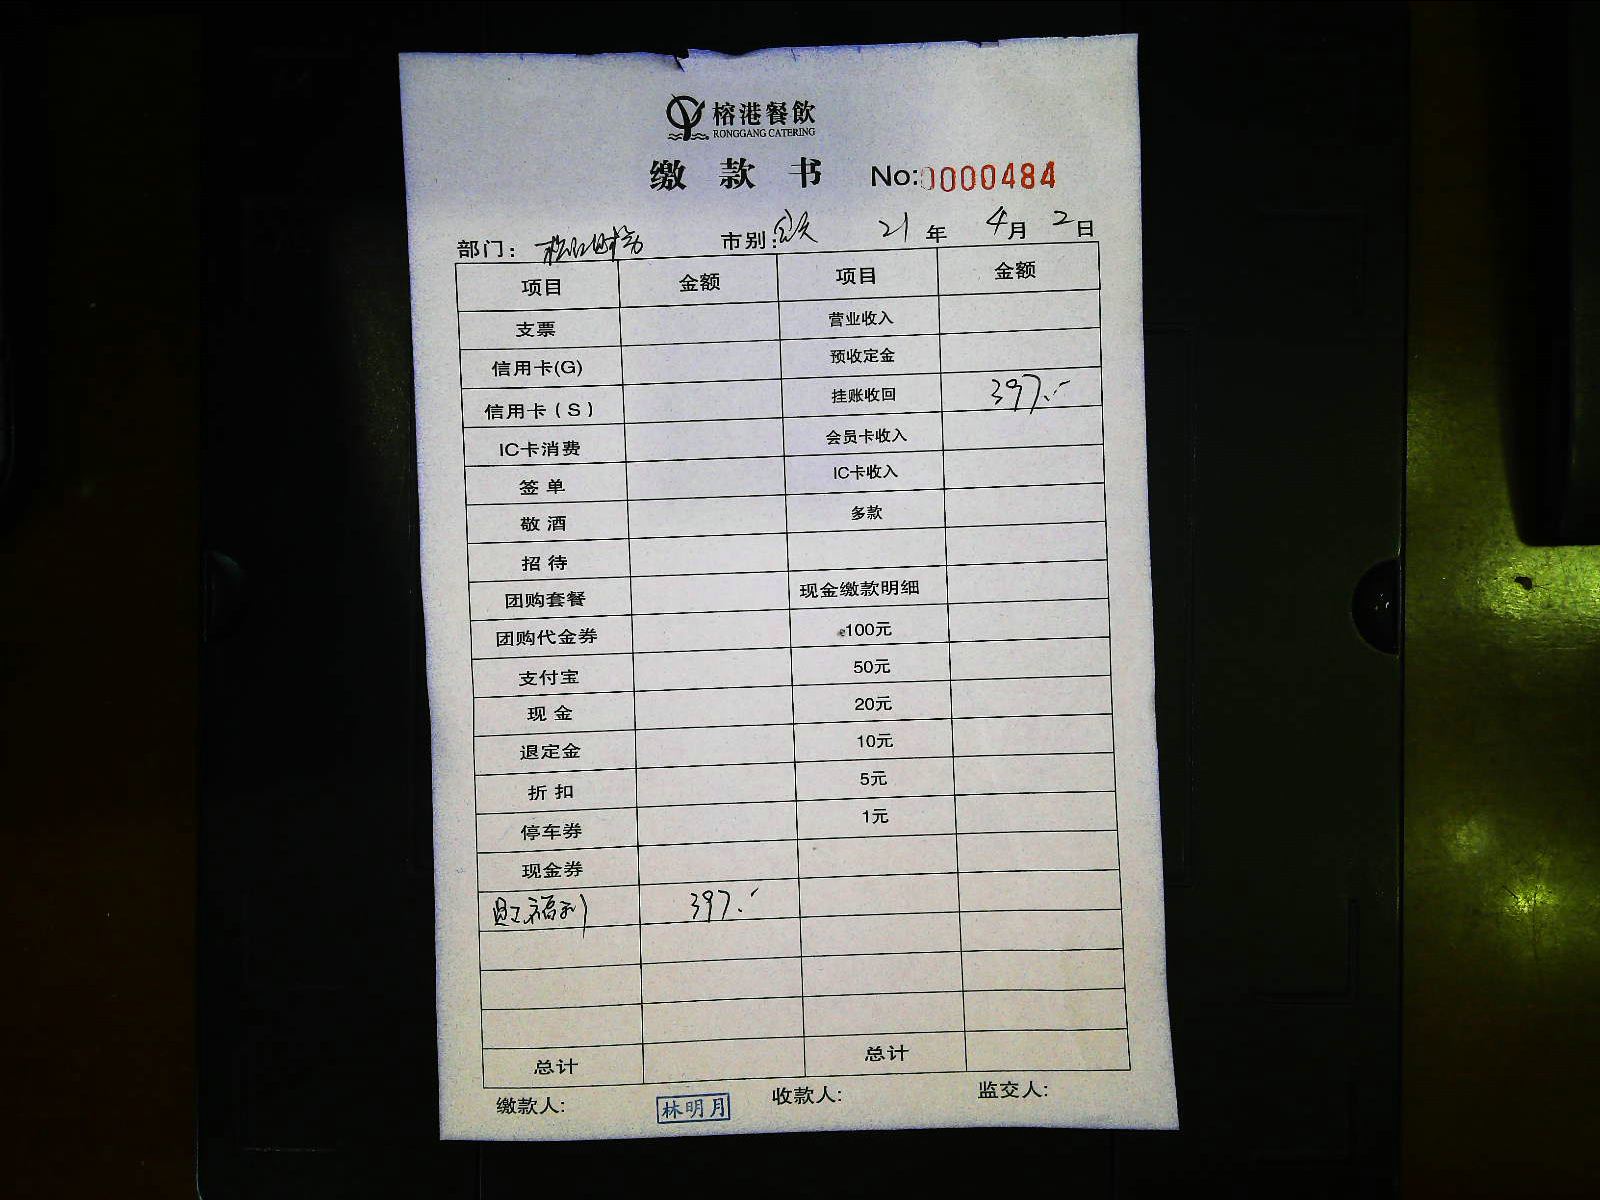 榕港餐飲
RONGGANG CATERING
缴款书 No:0000484
部门: 市别: 全天 21年 4月 2日
项目 金额 项目 金额
支票 营业收入
信用卡(G) 预收定金
信用卡(S) 挂账收回 397.-
IC卡消费 会员卡收入
签单 IC卡收入
敬酒 多款
招待
团购套餐 现金缴款明细
团购代金券 100元
支付宝 50元
现金 20元
退定金 10元
折扣 5元
停车券 1元
现金券
员工福利 397.-
总计 总计
缴款人: 林明月 收款人: 监交人: